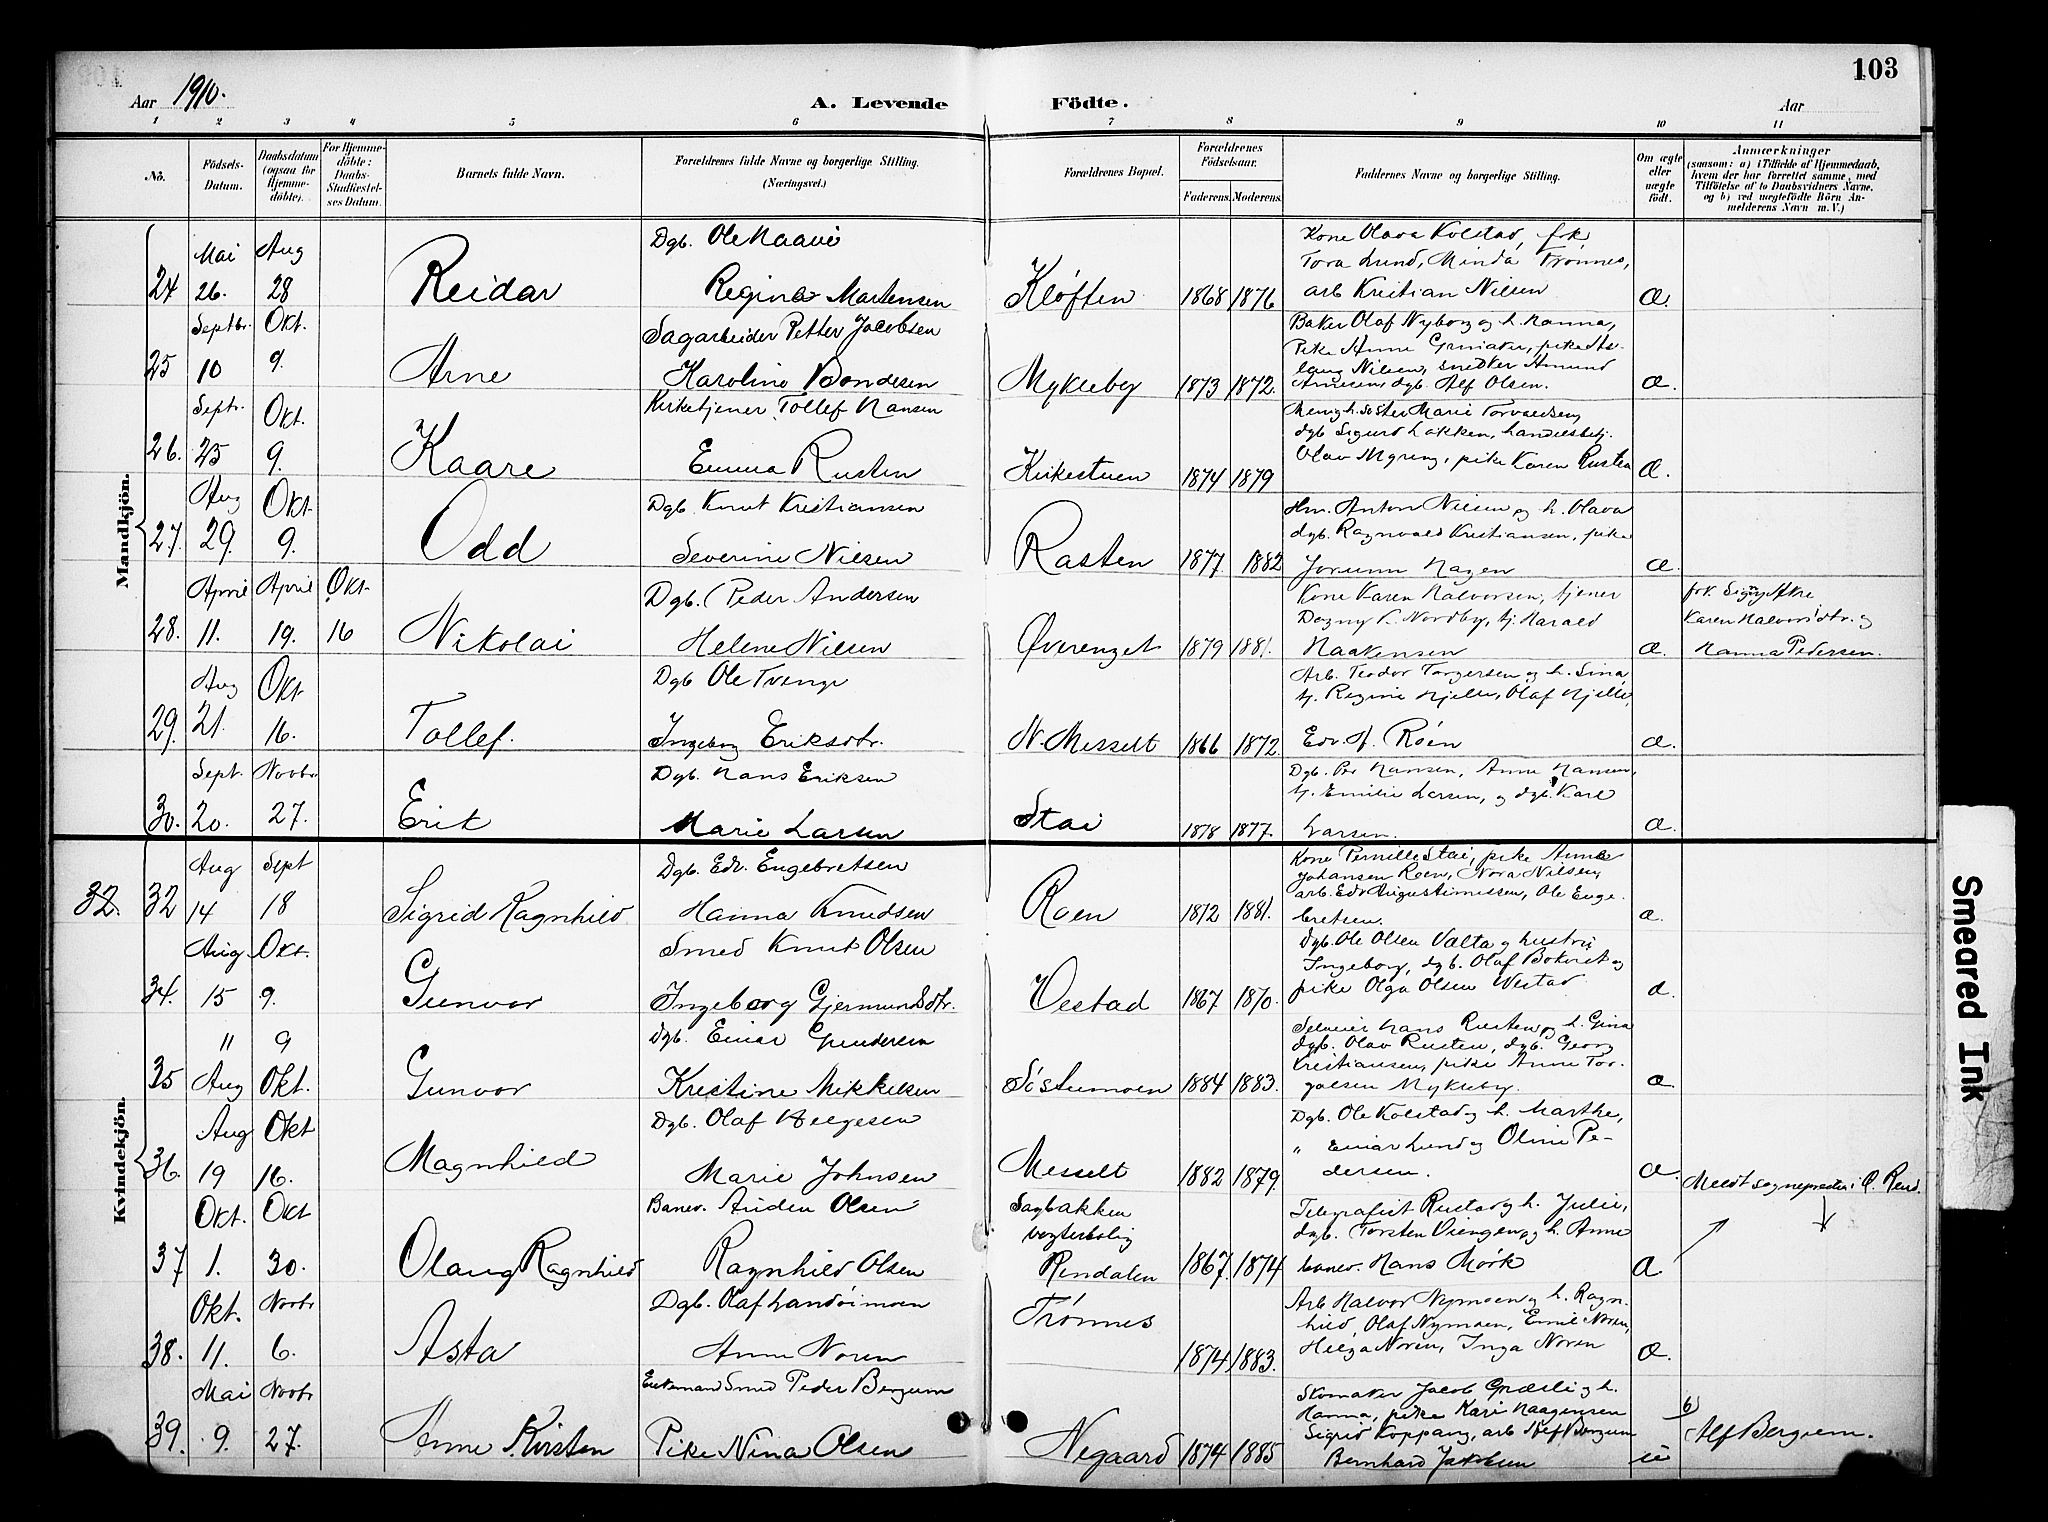 103
Aar 1910.
A. Levende Födte.
Aar
1 2 3 4 5 6 7 8 9 10 11
No.
Födsels-Datum.
Daabsdatum (ogsaa for Hjemme-döbte).
For Hjemme-döbte: Daabs-Stadfæstel-ses Datum.
Barnets fulde Navn.
Forældrenes fulde Navne og borgerlige Stilling. (Næringsvei.)
Forældrenes Bopæl.
Forældrenes Födselsaar.
Faderens. Moderens.
Faddernes Navne og borgerlige Stilling.
Om ægte eller uægte födt.
Anmærkninger
(saasom: a) i Tilfælde af Hjemmedaab, hvem der har forrettet samme, med Tilföielse af to Daabsvidners Navne, og b) ved uægtefödte Börn An-melderens Navn m. V.)
Mandkjön.
24 Mai 26. Aug 28 Reidar
Dgb. Ole Haavi
Regine Martensen
Kløften 1868 1876
Kone Olava Kolstad, frk
Tora Lund, Minda Trønnes,
arb Kristian Nilsen
Æ.
25 Septbr. 10 Okt. 9. Arne
Sagarbeider Petter Jacobsen
Karoline Bondesen
Mykleby 1873 1872.
Baker Olaf Nyborg og h. Hanna,
Pike Anne, pike As-
laug Nilsen, snedker Amund
Arnesen, dgb. Alf Olsen.
Æ.
26. Septr. 25 Okt. 9. Kaare
Kirketjener Tollef Hansen
Emma Rusten
Kirkestuen 1874 1879
Menigh. søster Marie Torvaldsen,
dgb Sigurd Løkken, handelsbetj.
Olav Myreng, pike Karen Rusten
Æ.
27. Aug 29. Okt. 9. Odd
Dgb. Knut Kristiansen
Severine Nilsen
Rasten 1877 1882
Hm. Anton Nilsen og h. Olava
dgb. Ragnvald Kristiansen, pike
Jorunn Hagen
Æ.
28. April 11. April 19. Okt. 16 Nikolai
Dgb. Peder Andersen
Helene Nilsen
Øverenget 1879 1881.
Kone Karen Halvorsen, tjener
Dagny K. Nordby, tj. Harald
Haakensen
Æ.
frk. Signy Akre
Karen Halvorsdtr. og
Hanna Pedersen.
29. Aug 21. Okt 16. Tollef.
Dgb Ole Tvenge
Ingeborg Eriksdtr.
N. Messelt 1866 1872.
Arb. Teodor Torgersen og h. Sina,
tj. Regine Hjelle, Olaf Hjelle,
Edv. H. Røen
Æ.
30. Sept. 20. Novbr 27. Erik
Dgb. Hans Eriksen
Marie Larsen
Stai 1878 1877.
Dgb. Per Hansen, Anne Hansen,
tj. Emilie Larsen, og dgb. Karl
Larsen.
Æ.
Kvindekjön.
32. 32 Aug 14 Sept 18 Sigrid Ragnhild
Dgb. Edv. Engebretsen
Hanna Knudsen
Roen 1872 1881.
Kone Pernille Stai, pike Anna
Johansen Roen, Nora Nilsen,
arb. Edv Augustinussen, Ole Enge-
bretsen.
Æ.
34. Aug. 15 Okt. 9. Gunvor
Smed Knut Olsen
Ingeborg Gjermundsdtr.
Vestad 1867 1870.
Dgb. Ole Olsen Valta og hustru
Ingeborg, dgb. Olaf Bokvist og
pike Olga Olsen Westad
Æ.
35 " Aug 9 Okt. Gunvor
Dgb. Einar Gundersen
Kristine Mikkelsen
Søstumoen 1884 1883.
Selveier Hans Rusten og h. Gina
dgb. Olav Rusten, dgb. Georg
Kristiansen, pike Anne Tor-
galsen Mykleby.
Æ
36. Aug 19 Okt 16. Magnhild
Dgb. Olaf Helgesen
Marie Johnsen
Messelt 1882 1879.
Dgb. Ole Kolstad og h. Marthe,
" Einar Lund og Oline Pe-
dersen.
Æ.
Meldt sognepresten i Ø. Rend.
37 Okt. 1. Okt 30. Olaug Ragnhild
Banev. Auden Olsen
Ragnhild Olsen
Sagbakken
vogterbolig
Rendalen 1867 1874
Telegrafist Rustad og h. Julie,
dgb. Torsten Viengen og h. Anne
banev. Hans Mørk
Æ
38. Okt. 11. Novbr 6. Asta
Dgb. Olaf Landsimoen
Anne Noren
Trønnes 1874 1883.
Arb Halvor Nymoen og h. Ragn-
hild, Olaf Nymoen, Emil Noren,
Helga Noren, Inga Noren
Æ.
39. Mai 9. Novbr 27. Anne Kirsten
Enkemand Smed Peder Bergum
Pike Nina Olsen
Negaard 1874 1885
Skomaker Jacob Græsli og h.
Hanna, pike Kari Haagensen
Sigrid Koppang, arb Alf Bergum
Bernhard Jakobsen
u
b)
Alf Bergum.
Smeared Ink